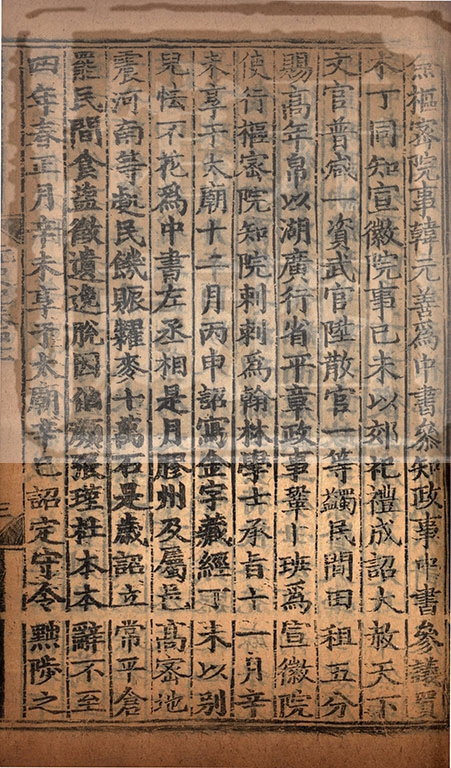 無樞密院事韓元善爲中書參知政事中書參議買
木丁同知宣徽院事已未以郊祀禮成詔大赦天下
文官普减一資武官陞散官一等蠲民間田租五分
賜高年帛以湖廣行省平章政事鞏卜班爲宣徽院
使行樞密院知院剌剌爲翰林學士承旨十一月辛
未享于太廟十二月丙申詔寫金字藏經丁未以别
兒怯不花爲中書左丞相是月膠州及屬邑高密地
震河南等處民饑賑糶麥十萬石是歲詔立常平倉
罷民間食鹽徵遺逸脫因伯顔張瑾杜本本辭不至
四年春正月辛未享于太廟辛巳詔定守令黜陟之